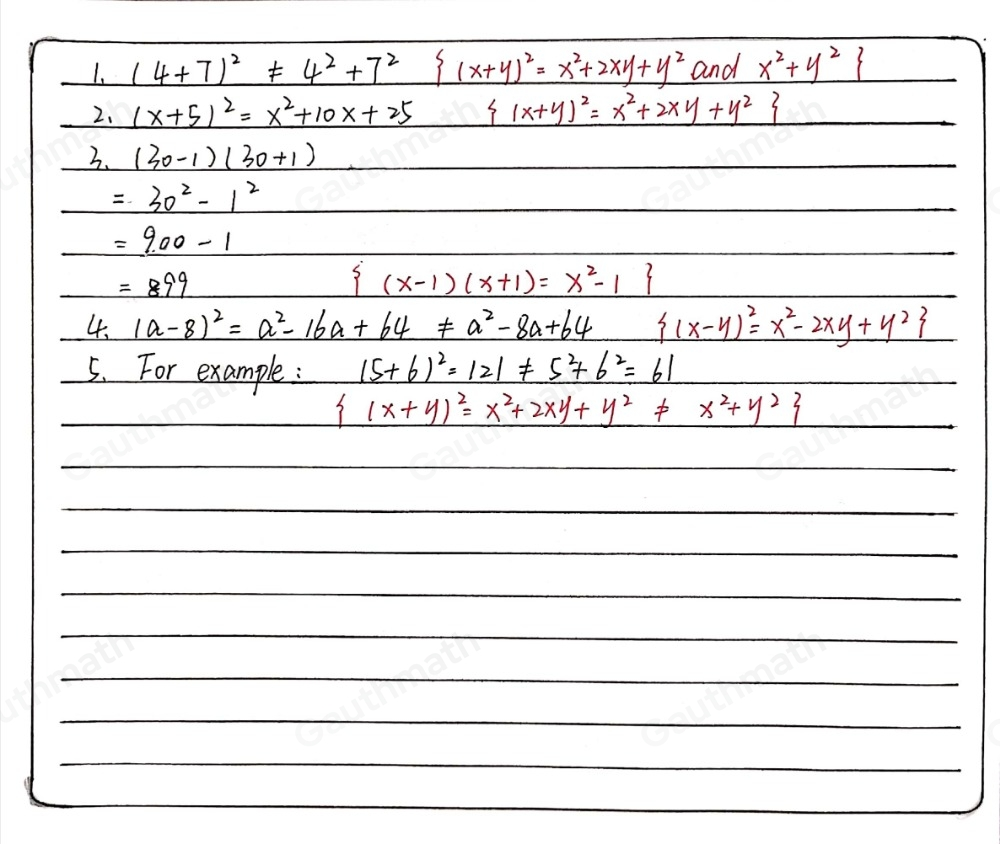 1. (4+7)² ≠ 4²+7² {(x+y)²=x²+2xy+y² and x²+y²}
2. (x+5)²=x²+10x+25 {(x+y)²=x²+2xy+y²}
3. (30-1)(30+1)
= 30²-1²
= 900-1
= 899 {(x-1)(x+1)=x²-1}
4. (a-8)²=a²-16a+64 ≠ a²-8a+64 {(x-y)²=x²-2xy+y²}
5. For example: (5+6)²=121 ≠ 5²+6²=61
{(x+y)²=x²+2xy+y² ≠ x²+y²}
Gauthmath